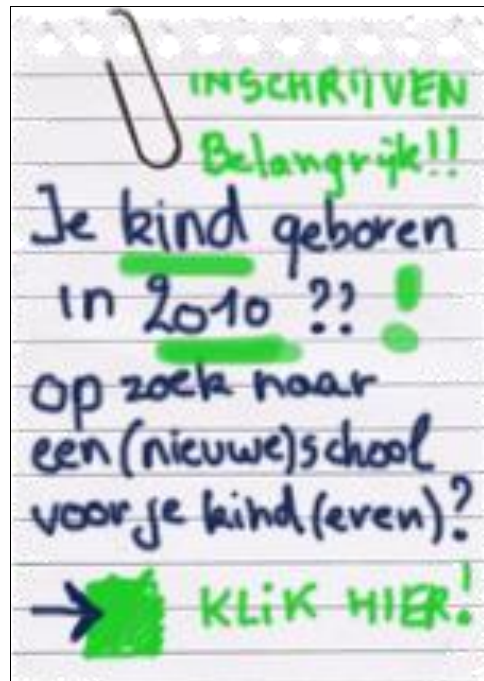 INSCHRIJVEN
Belangrijk!!
Je kind geboren
in 2010 ?? !
op zoek naar
een (nieuwe) school
voor je kind(eren)?
→ KLIK HIER!